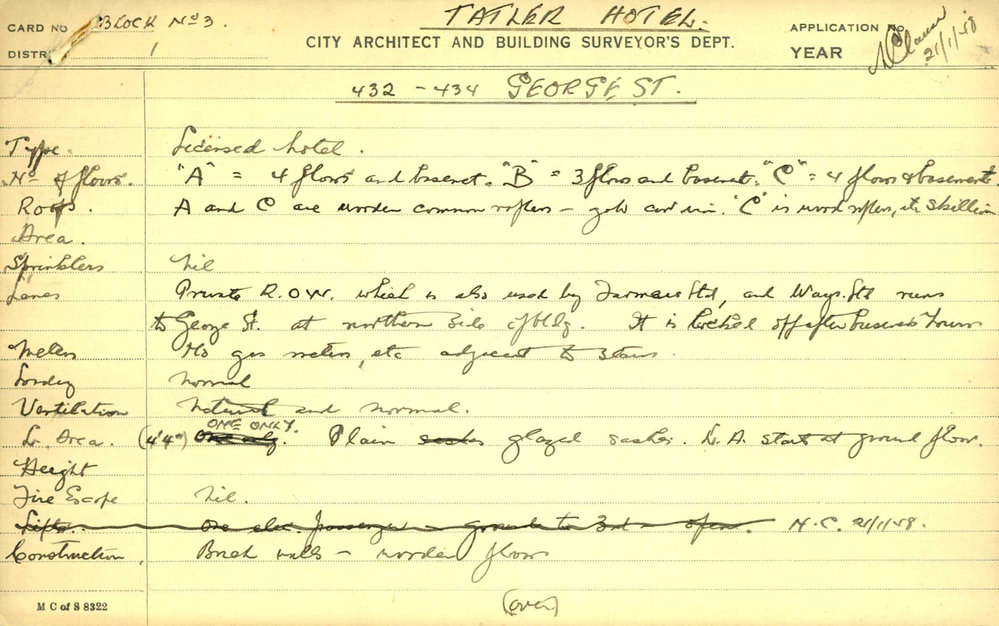 CARD No BLOCK No 3. TATLER HOTEL. APPLICATION No
DISTRICT 1 CITY ARCHITECT AND BUILDING SURVEYOR'S DEPT. YEAR 21/1/58
432 - 434 GEORGE ST.
Type. Licensed hotel.
No of floors. "A" = 4 floors and basement. "B" = 3 floors and basement. "C" = 4 floors & basement.
Roofs. A and C are wooden common rafters - galv corr iron. "C" is wood rafters, etc Skillion
Area.
Sprinklers Nil
Lanes Private R.O.W. which is also used by Farmers Ltd, and Ways Ltd runs
to George St. at northern side of bldg. It is locked off after business hours
Meters No gas meters, etc adjacent to stairs.
Loading Normal
Ventilation Natural and normal.
ONE ONLY.
Lt. Area. (4'4") One only. Plain sashes glazed sashes. L. A. starts at ground floor.
Height
Fire Escape Nil.
Lifts. One elec. passenger - ground to 3rd - open. N.C. 21/1/58.
Construction. Brick walls - wooden floors
M C of S 8322 (over)